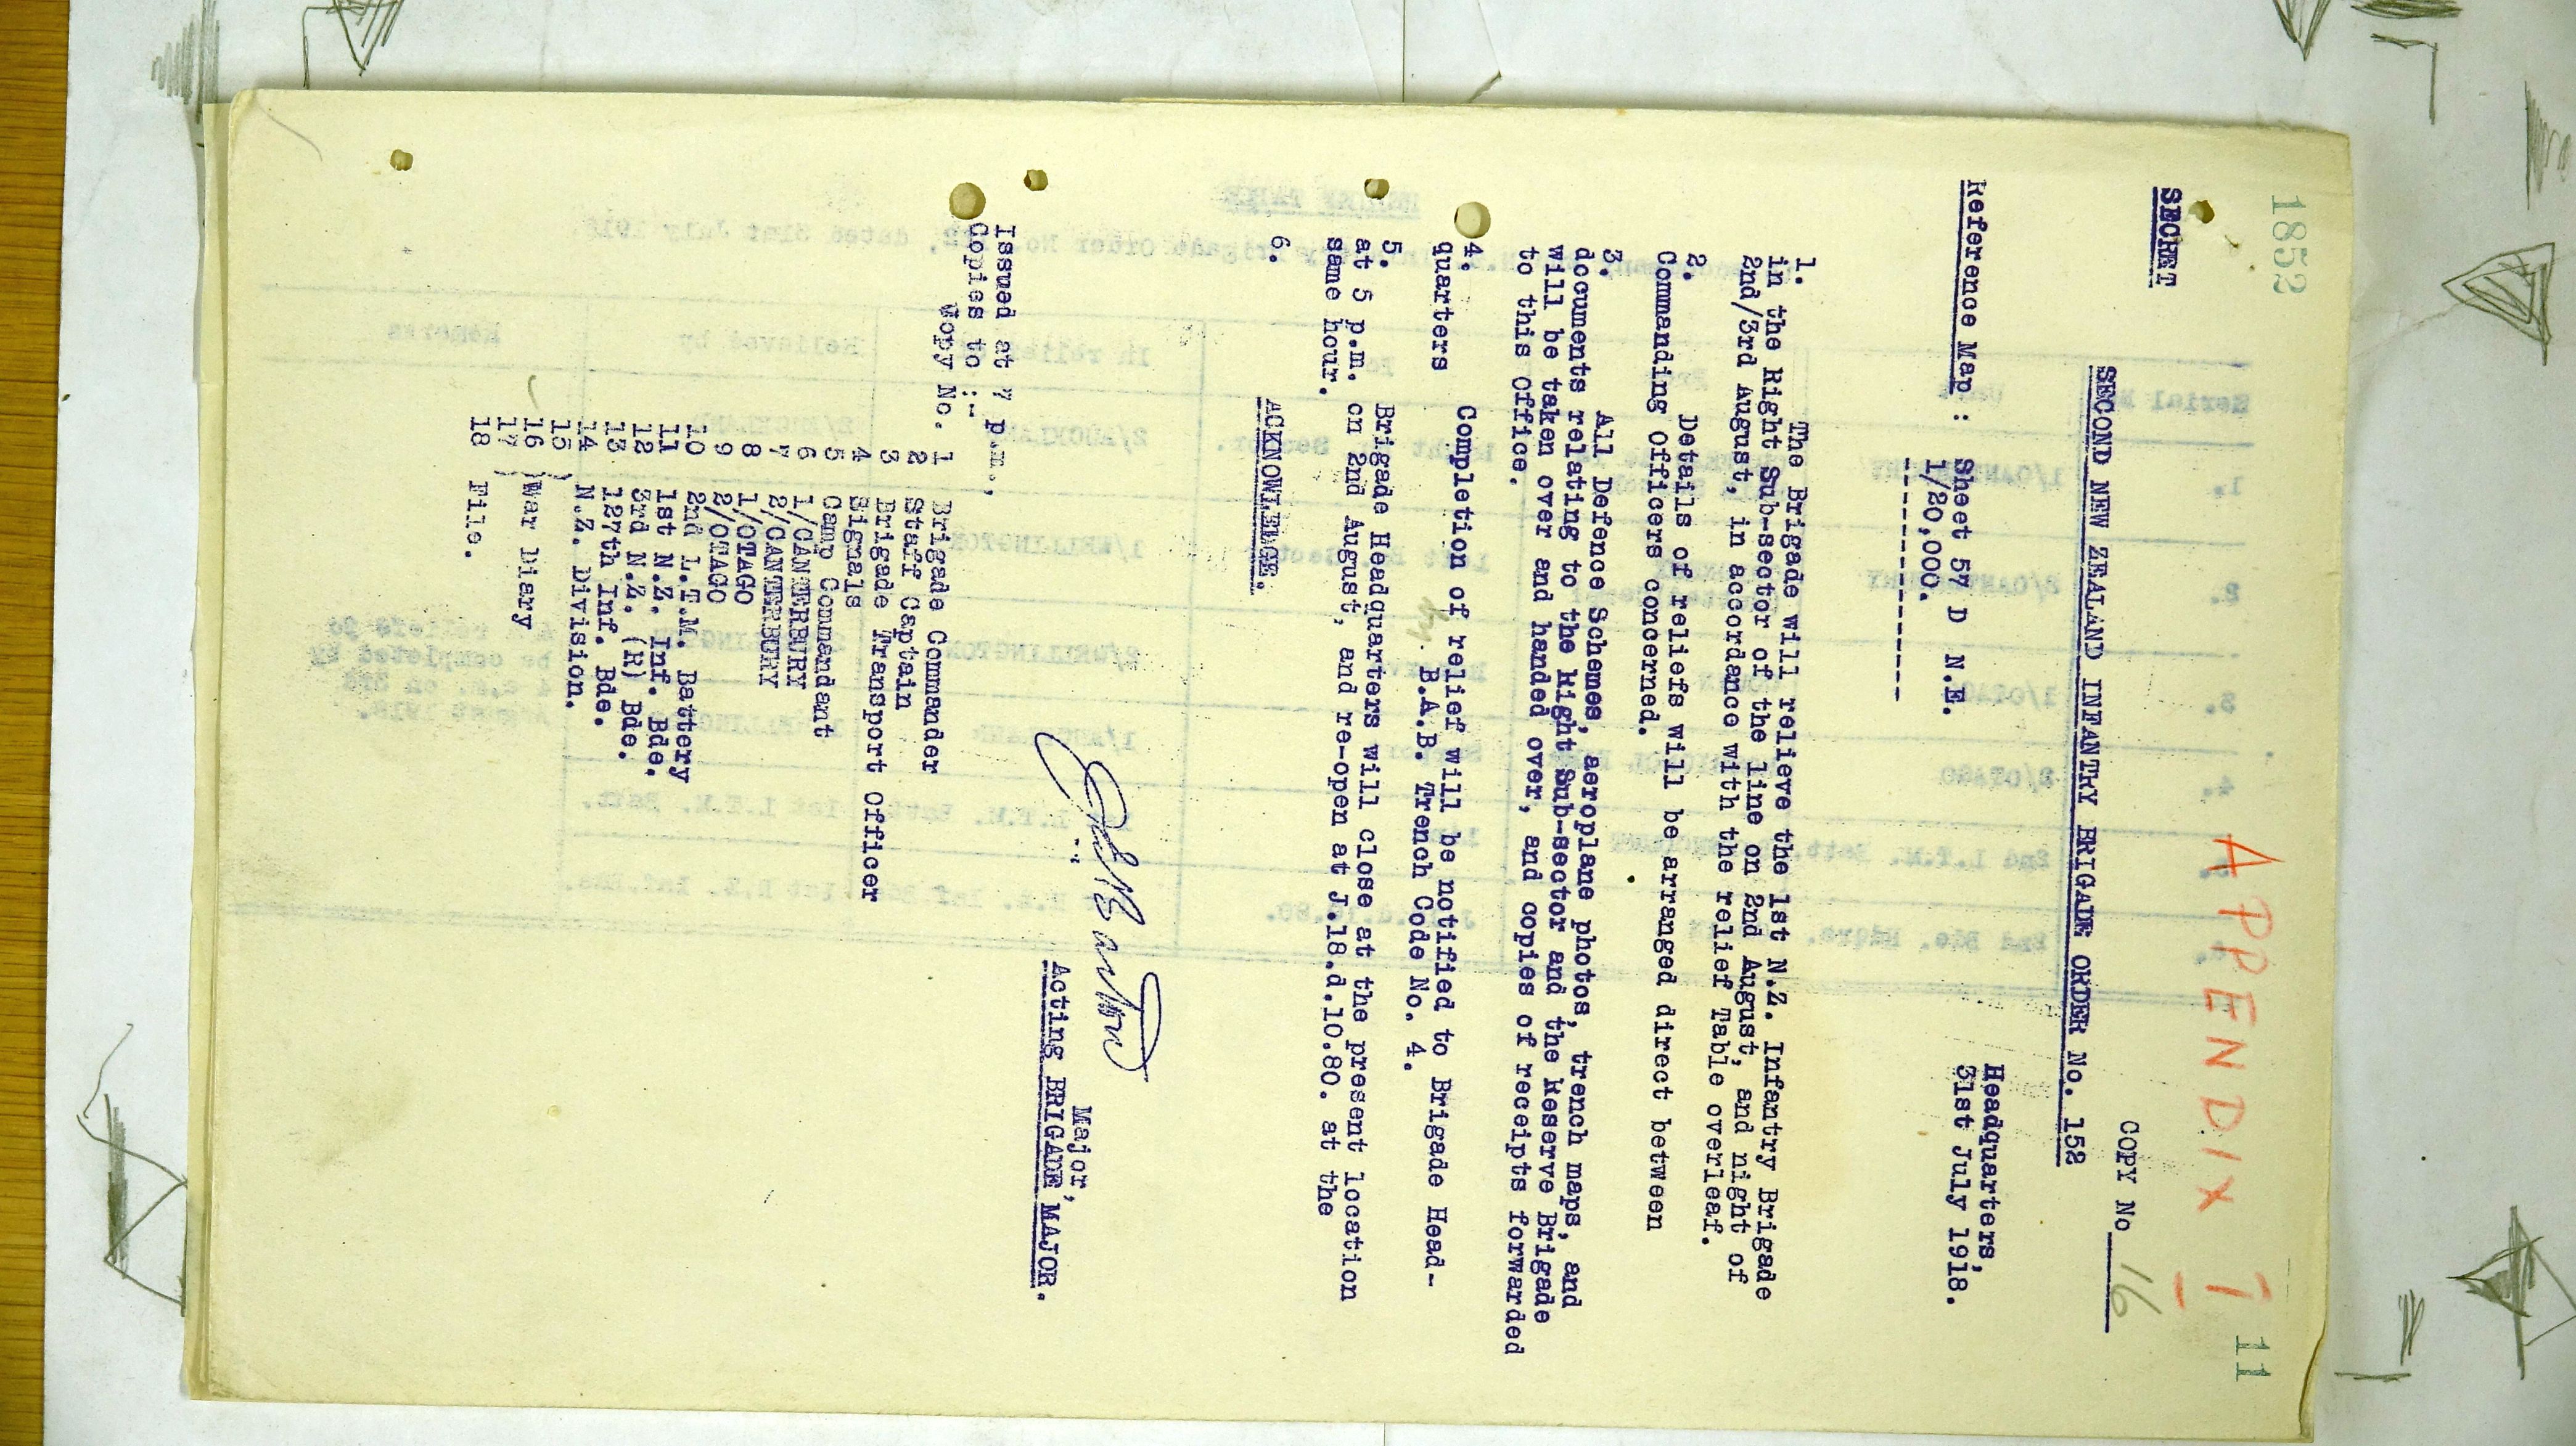 1852
APPENDIX 1
11
SECRET
COPY No 16
SECOND NEW ZEALAND INFANTRY BRIGADE ORDER No. 152
Headquarters,
31st July 1918.
Reference Map : Sheet 57 D N.E.
1/20,000.
----------------
1. The Brigade will relieve the 1st N.Z. Infantry Brigade
in the Right Sub-sector of the line on 2nd August, and night of
2nd/3rd August, in accordance with the relief Table overleaf.
2. Details of reliefs will be arranged direct between
Commanding Officers concerned.
3. All Defence Schemes, aeroplane photos, trench maps, and
documents relating to the Right Sub-sector and the Reserve Brigade
will be taken over and handed over, and copies of receipts forwarded
to this Office.
4. Completion of relief will be notified to Brigade Head-
quarters by B.A.B. Trench Code No. 4.
5. Brigade Headquarters will close at the present location
at 5 p.m. on 2nd August, and re-open at J.18.d.10.80. at the
same hour.
6. ACKNOWLEDGE.
Major,
Acting BRIGADE MAJOR.
Issued at 7 p.m.,
Copies to :-
Copy No. 1 Brigade Commander
2 Staff Captain
3 Brigade Transport Officer
4 Signals
5 Camp Commandant
6 1/CANTERBURY
7 2/CANTERBURY
8 1/OTAGO
9 2/OTAGO
10 2nd L.T.M. Battery
11 1st N.Z. Inf. Bde.
12 3rd N.Z. (R) Bde.
13 127th Inf. Bde.
14 N.Z. Division.
15 )
16 )War Diary
17 )
18 File.